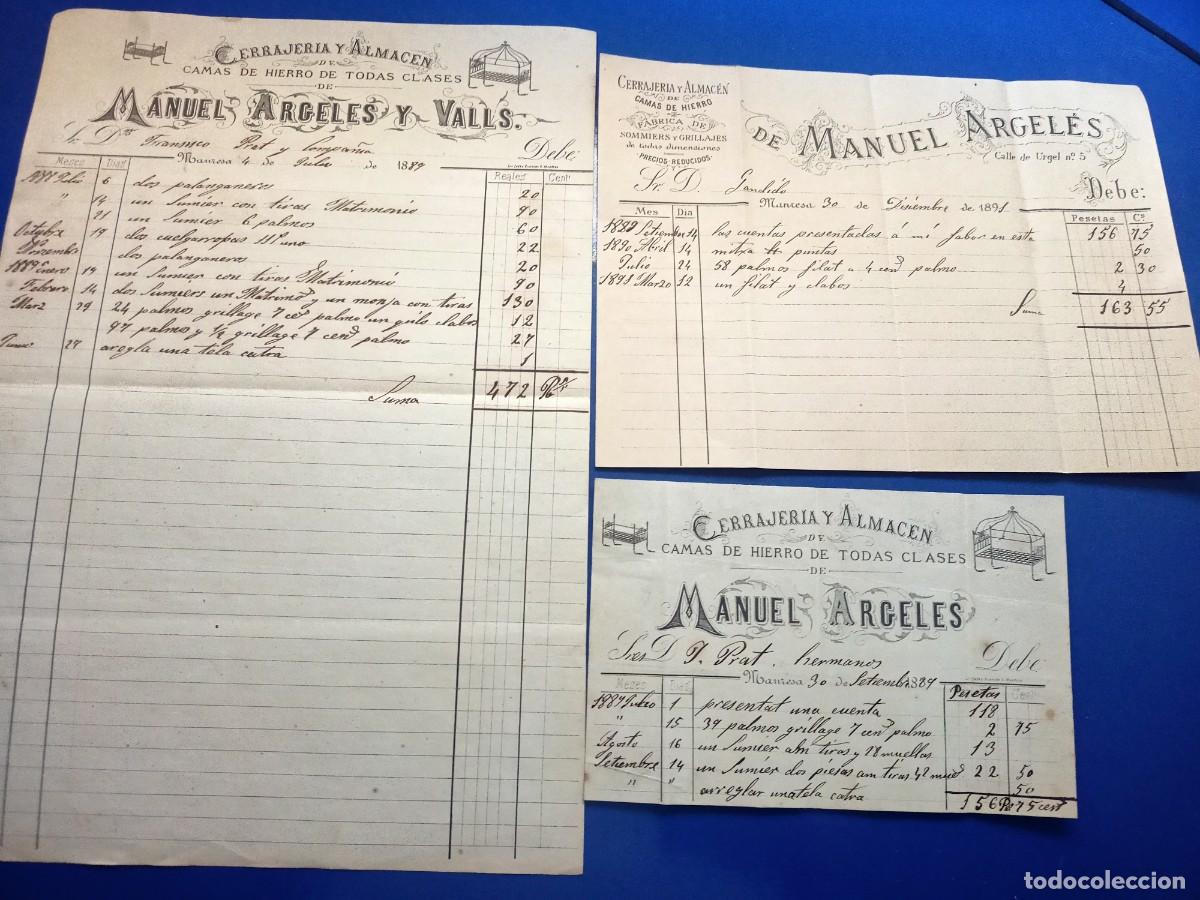 CERRAJERIA Y ALMACEN
DE
CAMAS DE HIERRO DE TODAS CLASES
DE
MANUEL ARGELES Y VALLS.
Prat y Compañia Debe
Manresa 4 de Julio de 1889
Meses Dias Reales Cent
Julio 6 dos palanganeros 20
" 14 un Sumier con tiras Matrimonio 90
21 un Sumier 6 palmos 60
Octubre 19 dos cuelgarropas 11 uno 22
dos palanganeros 20
Enero 19 un Sumier con tiras Matrimonio 90
Febrero 14 dos Sumiers un y un monja con tiras 130
Marz 29 24 palmos grillage 7 palmo un clabos 12
97 palmos y ½ grillage 7 palmo 27
27 aregla una tela catra 1
Suma 472
CERRAJERIA Y ALMACÉN
DE
CAMAS DE HIERRO
FÁBRICA DE
SOMMIERS Y GRILLAJES
de todas dimensiones
PRECIOS REDUCIDOS
DE MANUEL ARGELÉS
Calle de Urgel nº 5
Sr. D. Gandido Debe:
Manresa 30 de Disiembre de 1891
Mes Dia Pesetas Cs
1889 Setiembre 14 las cuentas presentadas á mi fabor en esta 156 75
1890 Abril 14 puntas 50
Julio 24 58 palmos filat a 4 palmo 2 30
1891 Marzo 12 un filat y clabos 4
Suma 163 55
CERRAJERIA Y ALMACEN
DE
CAMAS DE HIERRO DE TODAS CLASES
DE
MANUEL ARGELES
Sres D J. Prat. hermanos Debe
Manresa 30 de Setiembre 1889
Meses Dias Pesetas Cent
Julio 1 presentat una cuenta 118
" 15 39 palmos grillage 7 palmo 2 75
Agosto 16 un Sumier am tiras y 28 muellas 13
Setiembre 14 un Sumier dos piesas am tiras 42 22 50
" " arreglar una tela catra 50
156 75 cent
todocoleccion